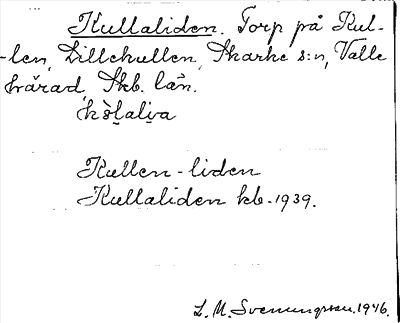 Kullaliden. Torp på Kul-
-len, Lillekullen, Skarke s:n, Valle
härad, Skb. län.
kòlaliva
Kullen-liden
Kullaliden kb. 1939.
L. M. Svenungsson. 1946.